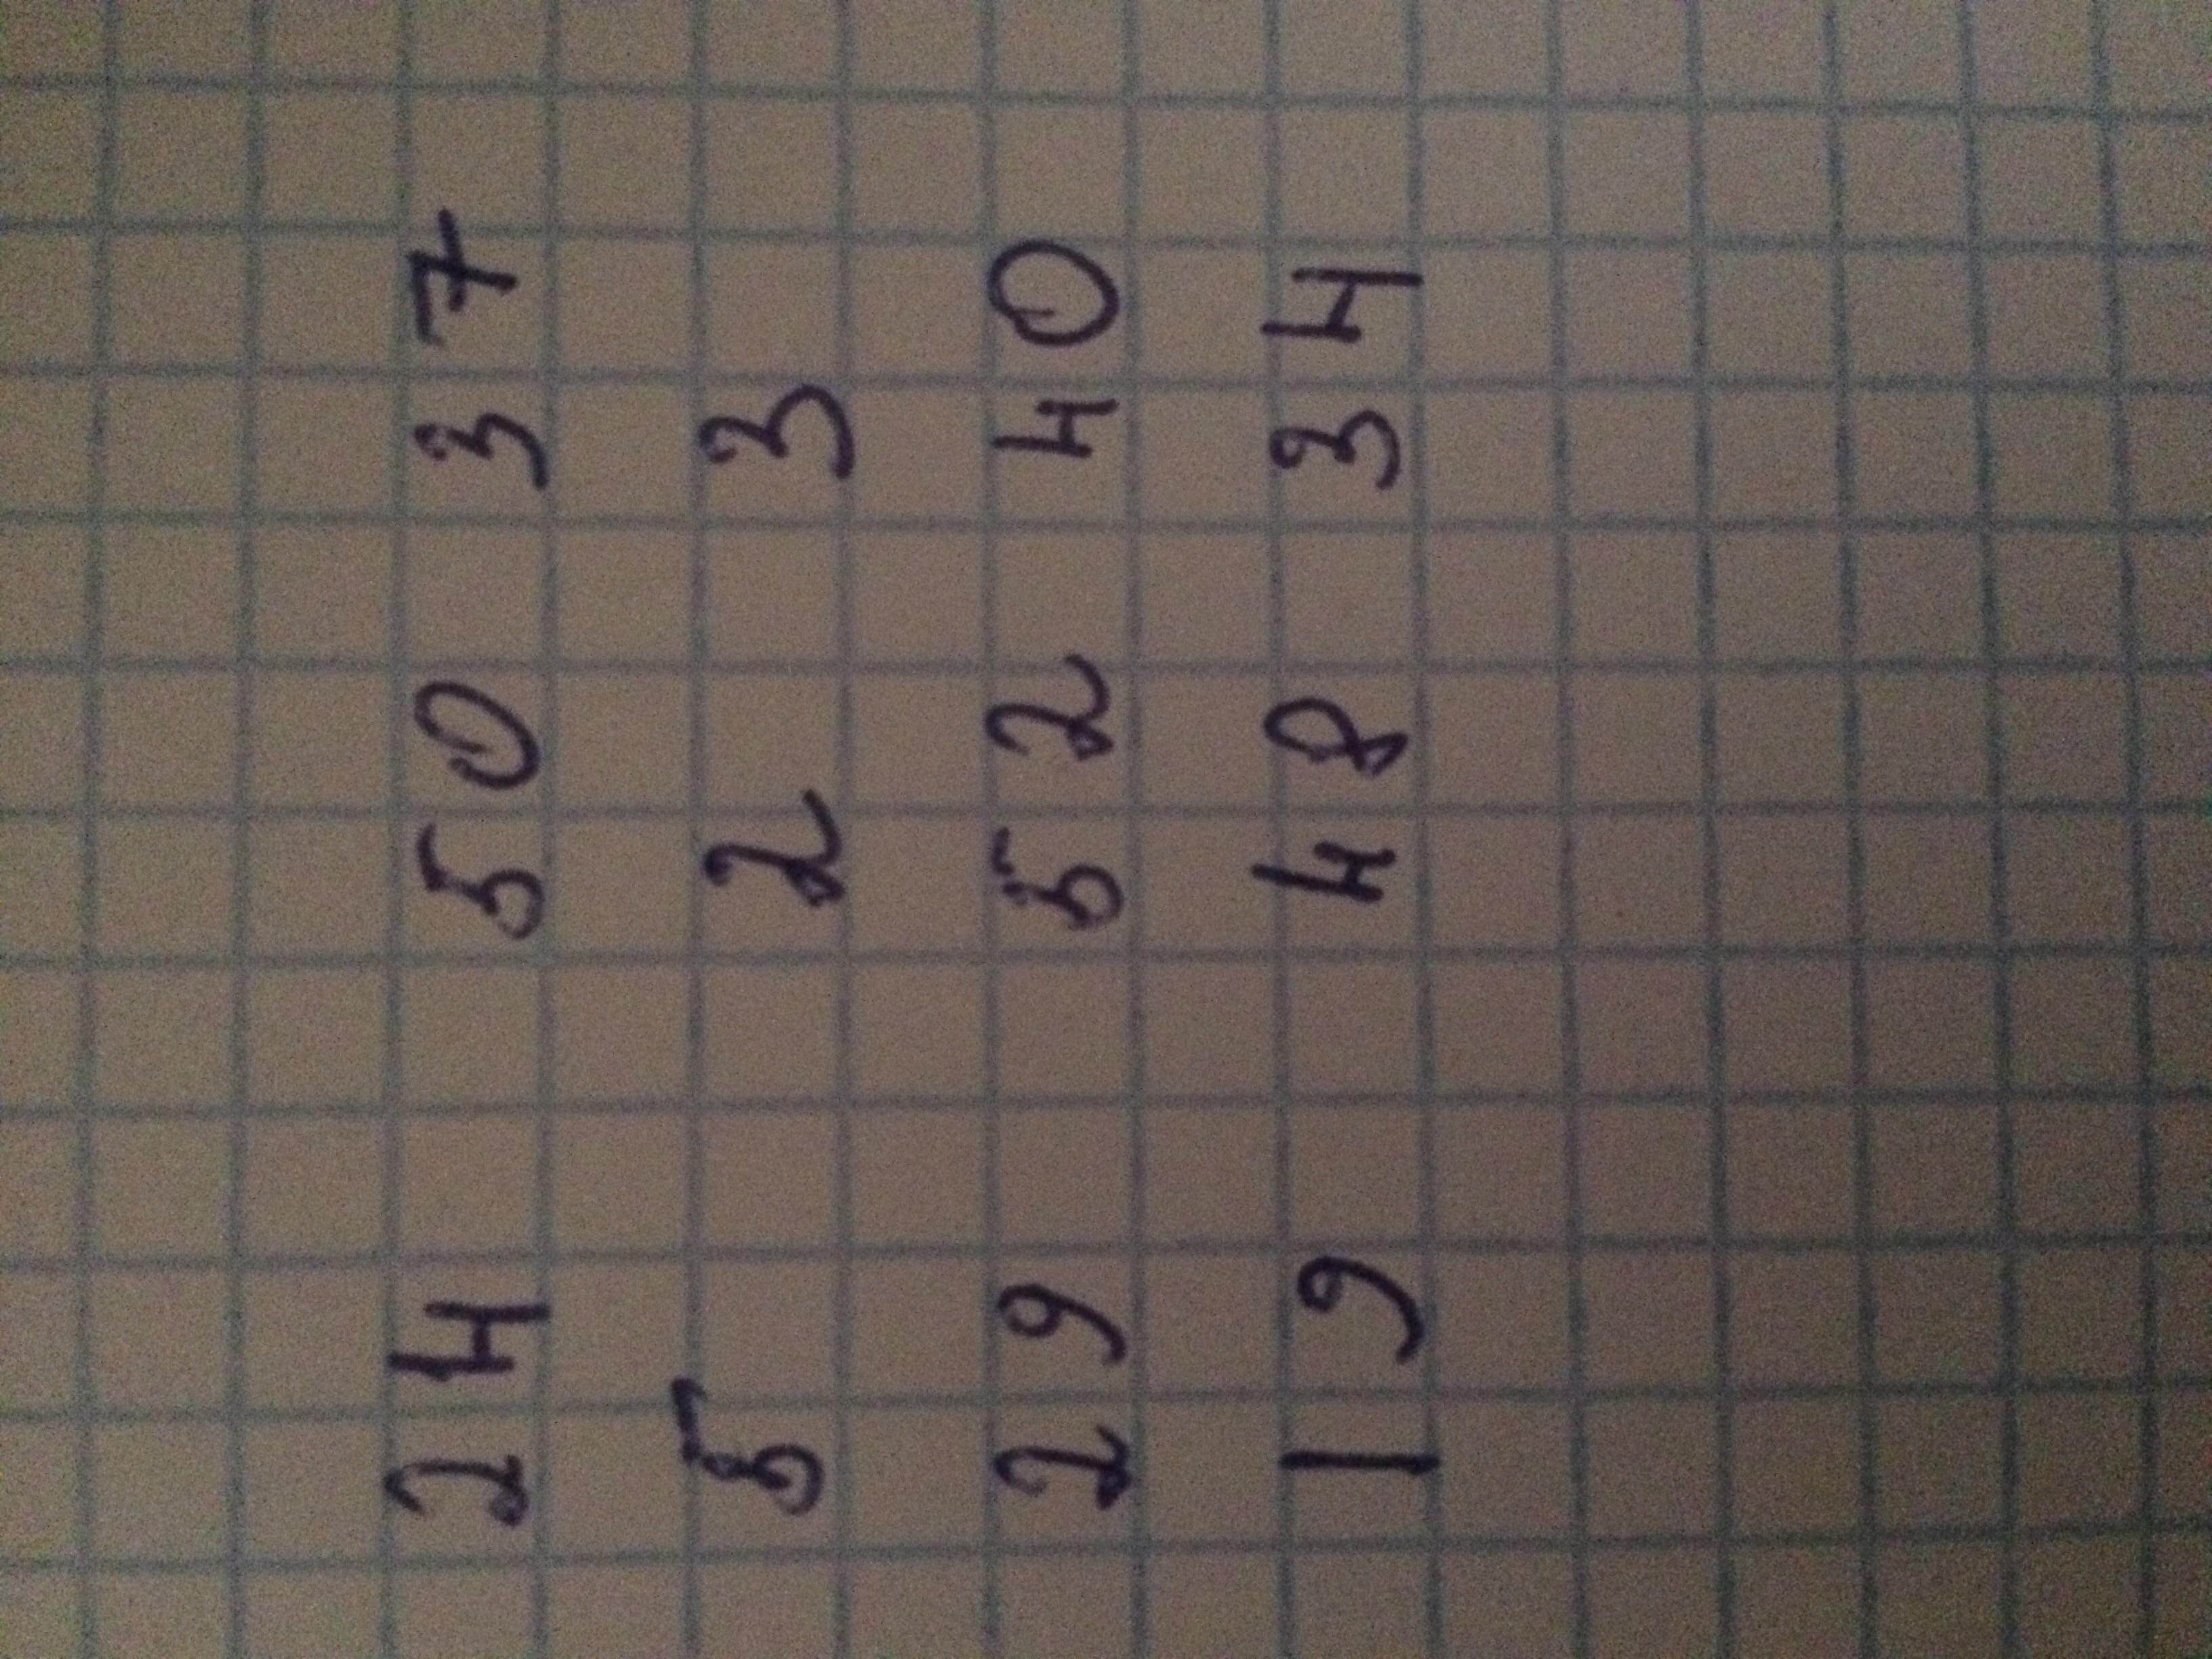 24 50 37
5 2 3
29 52 40
19 48 34